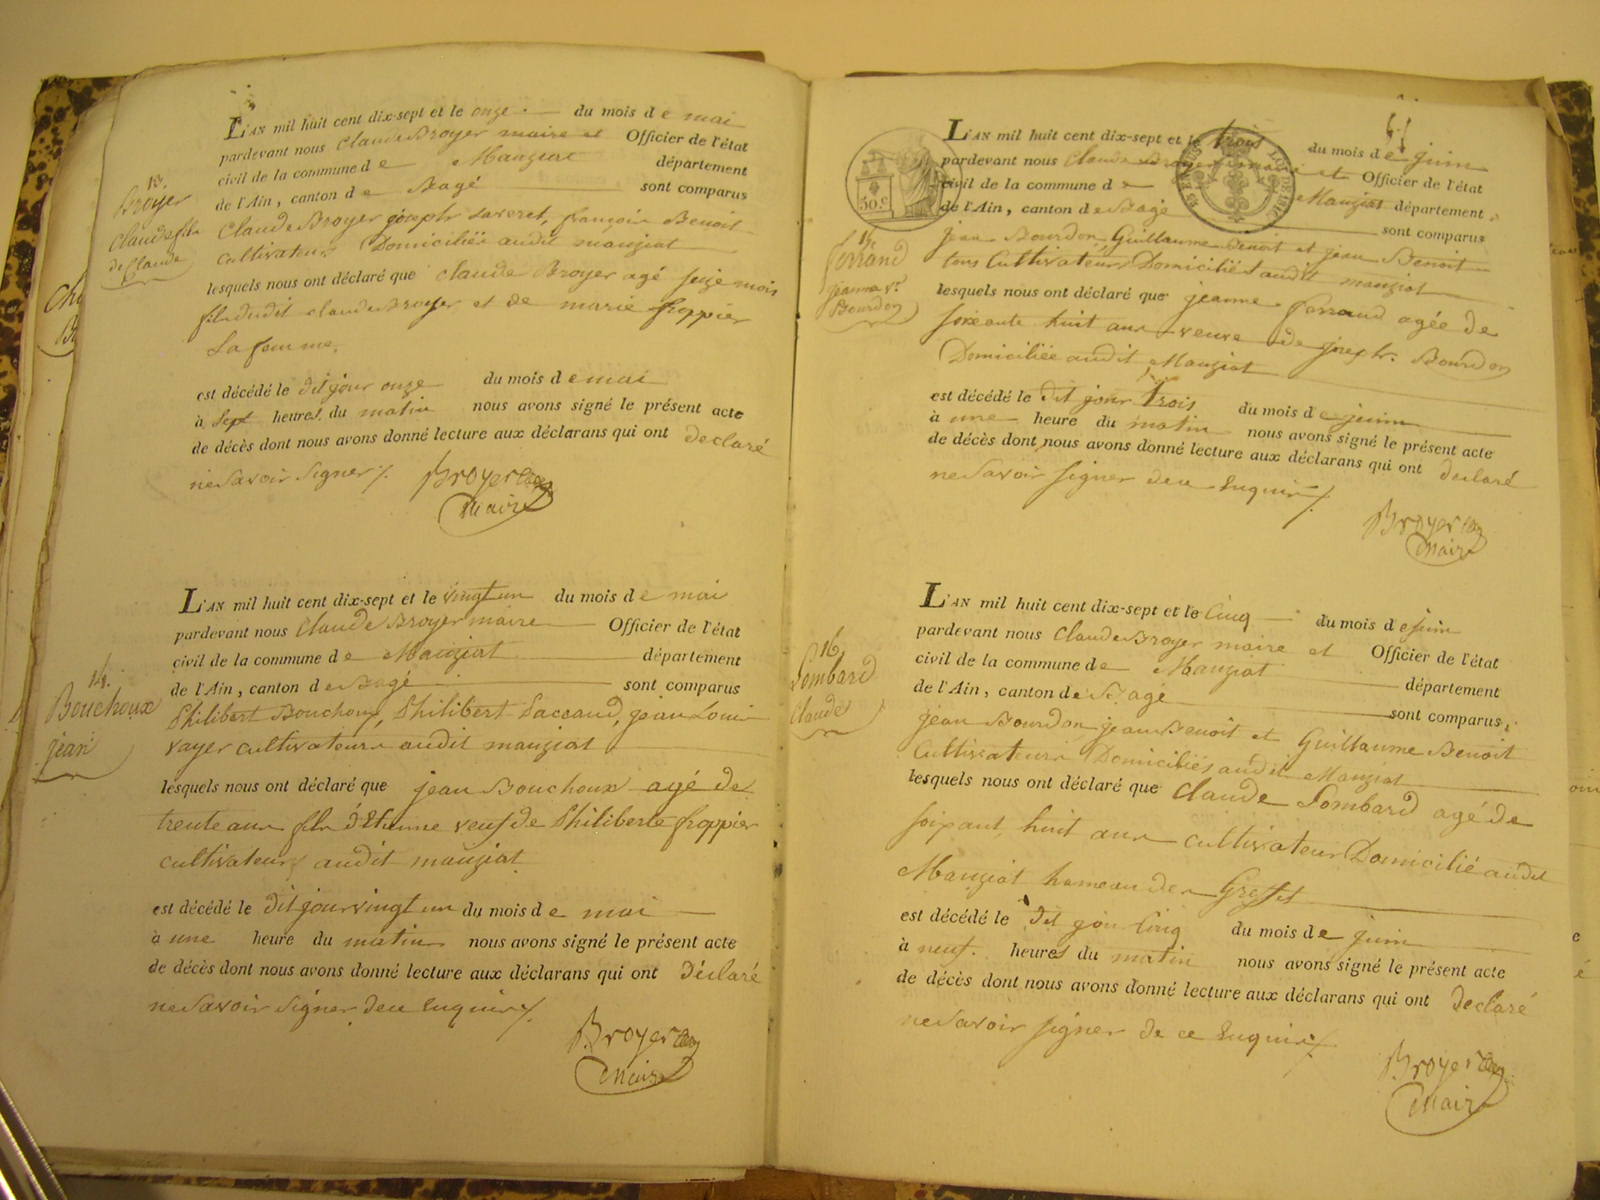 L'AN mil huit cent dix-sept et le onze du mois de mai
pardevant nous Claude Broyer maire et Officier de l'état
civil de la commune de Manziat département
de l'Ain, canton de Bagé sont comparus
13.
Broyer
Claude fils
de Claude
Claude Broyer joseph françois Benoit
cultivateurs Domiciliés audit manziat
lesquels nous ont déclaré que claude Broyer agé seize mois
fils dudit claude Broyer et de marie froppier
sa femme.
est décédé le dit jour onze du mois de mai
à sept heures du matin nous avons signé le présent acte
de décès dont nous avons donné lecture aux déclarans qui ont declaré
ne savoir signer /.
Broyer
Maire
L'AN mil huit cent dix-sept et le vingt un du mois de mai
pardevant nous Claude Broyer maire Officier de l'état
civil de la commune de Manziat département
de l'Ain, canton de Bagé sont comparus
14.
Bouchoux
jean
Philibert Bouchoux, Philibert Paccaud, jean Louis
vayer cultivateurs audit manziat
lesquels nous ont déclaré que jean Bouchoux agé de
trente ans fils d'Etienne veuf de Philiberte froppier
cultivateur audit manziat
est décédé le dit jour vingt un du mois de mai
à une heure du matin nous avons signé le présent acte
de décès dont nous avons donné lecture aux déclarans qui ont déclaré
ne savoir signer de ce enquis /.
Broyer
Maire
L'AN mil huit cent dix-sept et le trois du mois de juin
pardevant nous Claude Broyer maire et Officier de l'état
civil de la commune de Manziat département
de l'Ain, canton de Bagé sont comparus
50.C
15
ferrand
jeanne ve
Bourdon
jean Bourdon, Guillaume Benoit et jean Benoit
tous Cultivateurs Domiciliés audit manziat
lesquels nous ont déclaré que jeanne ferrand agée de
soixante huit ans veuve de joseph Bourdon
Domiciliée audit Manziat
est décédé le dit jour trois du mois de juin
à une heure du matin nous avons signé le présent acte
de décès dont nous avons donné lecture aux déclarans qui ont declaré
ne savoir signer de ce enquis /.
Broyer
Maire
L'AN mil huit cent dix-sept et le Cinq du mois de juin
pardevant nous Claude Broyer maire et Officier de l'état
civil de la commune de Manziat département
de l'Ain, canton de Bagé sont comparus
16
Lombard
Claude
jean Bourdon, jean Benoit et Guillaume Benoit
Cultivateurs Domiciliés audit Manziat
lesquels nous ont déclaré que Claude Lombard agé de
soixant huit ans cultivateur Domicilié audit
Manziat hameau des Greffet
est décédé le dit jour Cinq du mois de juin
à neuf heures du matin nous avons signé le présent acte
de décès dont nous avons donné lecture aux déclarans qui ont declaré
ne savoir signer de ce enquis /.
Broyer
Maire